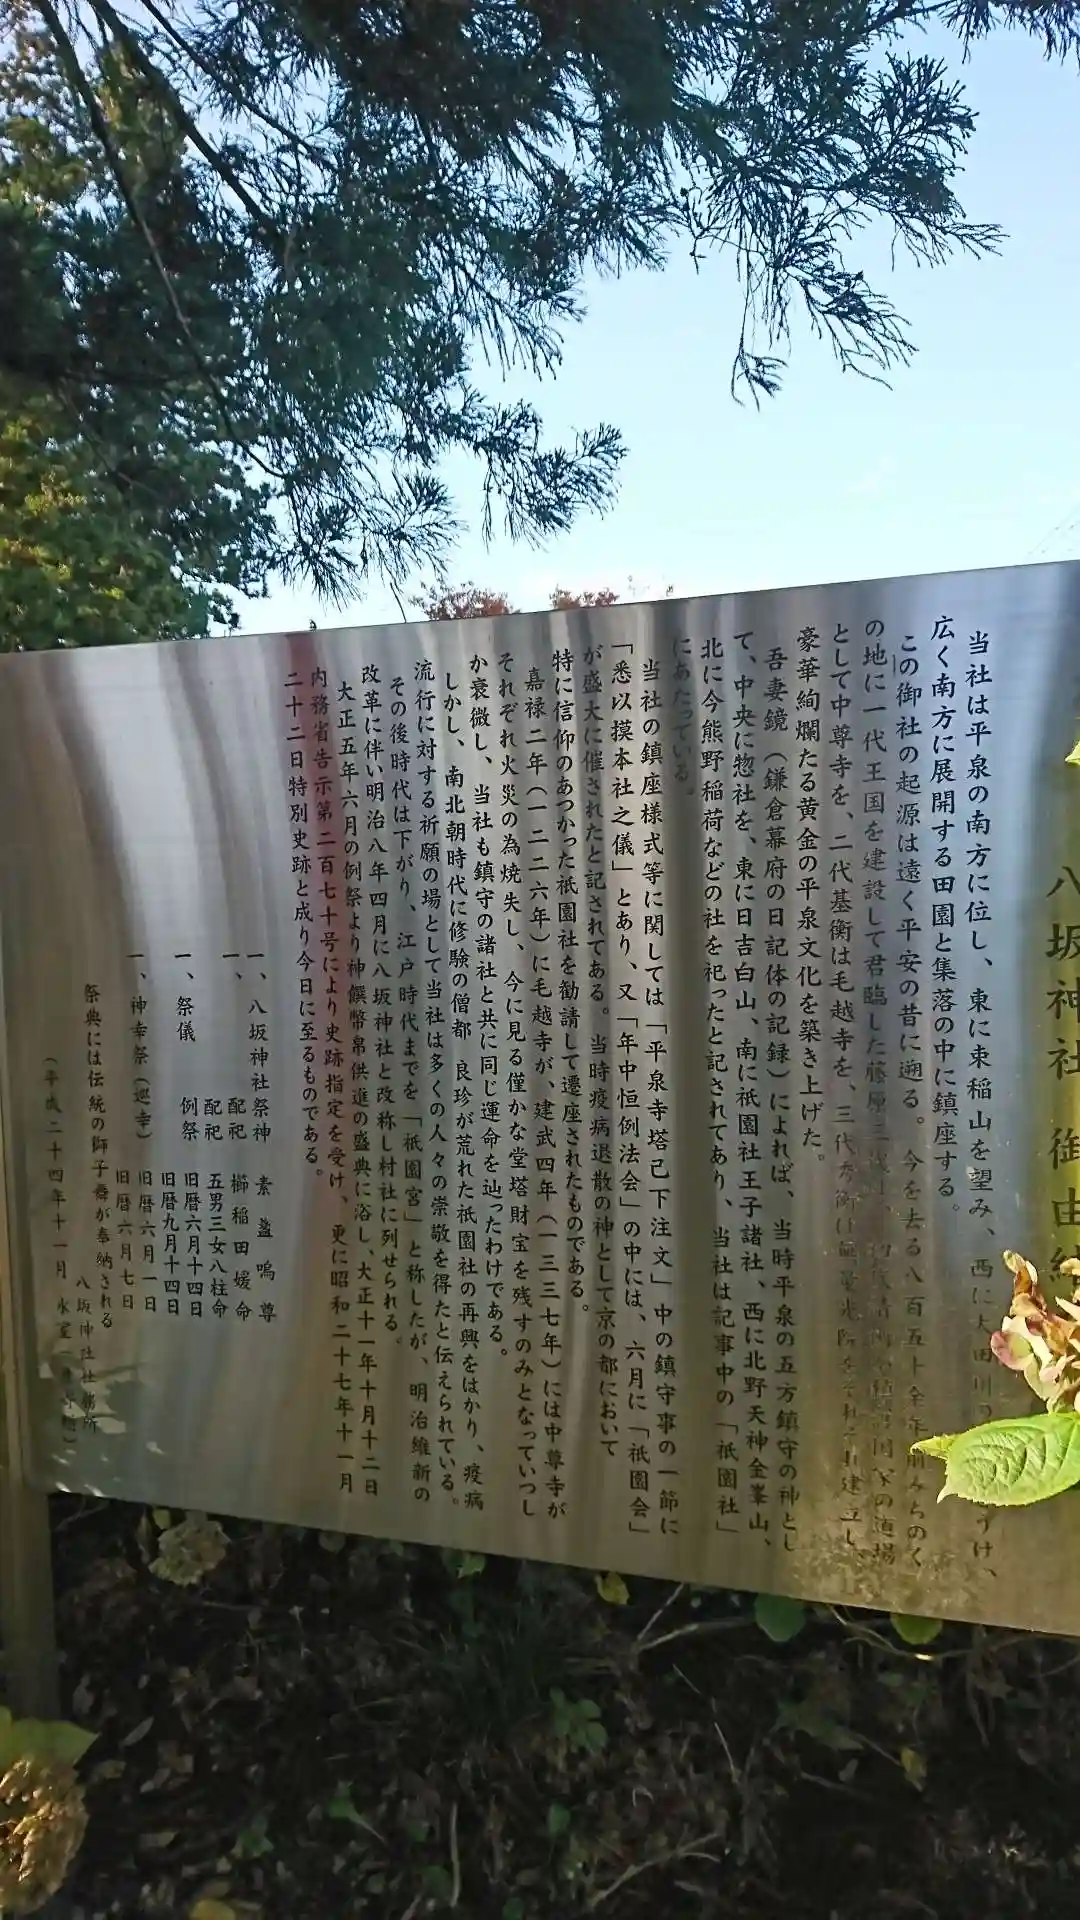 八坂神社 御由緒
当社は平泉の南方に位し、東に束稲山を望み、西に太田川の うけ、
広く南方に展開する田園と集落の中に鎮座する。
この御社の起源は遠く平安の昔に遡る。今を去る八百五十余年前みちのく
の地に一代王国を建設して君臨した藤原三代 国家の道場
として中尊寺を、二代基衡は毛越寺を、三代秀衡は無量光院をそれぞれ建立し
豪華絢爛たる黄金の平泉文化を築き上げた。
吾妻鏡（鎌倉幕府の日記体の記録）によれば、当時平泉の五方鎮守の神とし
て、中央に惣社を、東に日吉白山、南に祇園社王子諸社、西に北野天神金峯山、
北に今熊野稲荷などの社を祀ったと記されてあり、当社は記事中の「祇園社」
にあたっている。
当社の鎮座様式等に関しては「平泉寺塔已下注文」中の鎮守事の一節に
「悉以摸本社之儀」とあり、又「年中恒例法会」の中には、六月に「祇園会」
が盛大に催されたと記されてある。当時疫病退散の神として京の都において
特に信仰のあつかった祇園社を勧請して遷座されたものである。
嘉禄二年（一二二六年）に毛越寺が、建武四年（一三三七年）には中尊寺が
それぞれ火災の為焼失し、今に見る僅かな堂塔財宝を残すのみとなっていつし
か衰微し、当社も鎮守の諸社と共に同じ運命を辿ったわけである。
しかし、南北朝時代に修験の僧都 良珍が荒れた祇園社の再興をはかり、疫病
流行に対する祈願の場として当社は多くの人々の崇敬を得たと伝えられている。
その後時代は下がり、江戸時代までを「祇園宮」と称したが、明治維新の
改革に伴い明治八年四月に八坂神社と改称し村社に列せられる。
大正五年六月の例祭より神饌幣帛供進の盛典に浴し、大正十一年十月十二日
内務省告示第二百七十号により史跡指定を受け、更に昭和二十七年十一月
二十二日特別史跡と成り今日に至るものである。
一、八坂神社祭神 素盞嗚尊
一、 配祀 櫛稲田媛命
配祀 五男三女八柱命
一、祭儀 例祭 旧暦六月十四日
旧暦九月十四日
一、神幸祭（巡幸） 旧暦六月一日
旧暦六月七日
祭典には伝統の獅子舞が奉納される
八坂神社社務所
（平成二十四年十一月